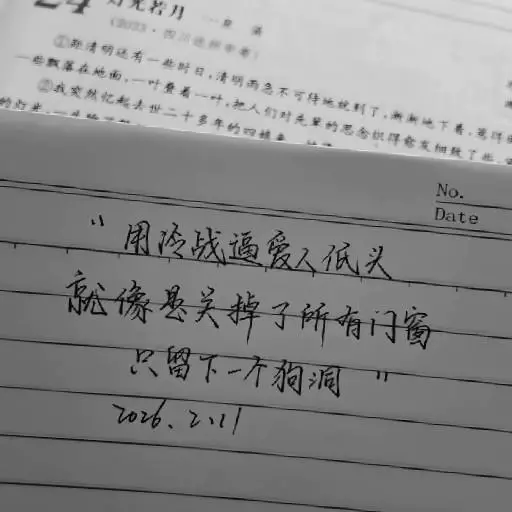 24 灯光若月
①距清明还有一些时日,清明雨急不可待地放到了,淅淅地下着,
一些飘落在地面,一叶叠着一叶,把人们对先辈的思念织得愈发细致了些,
②我突然忆起去世二十多年的四姨
No.
Date
“用冷战逼爱人低头
就像是关掉了所有门窗
只留下一个狗洞”
2026、2、11